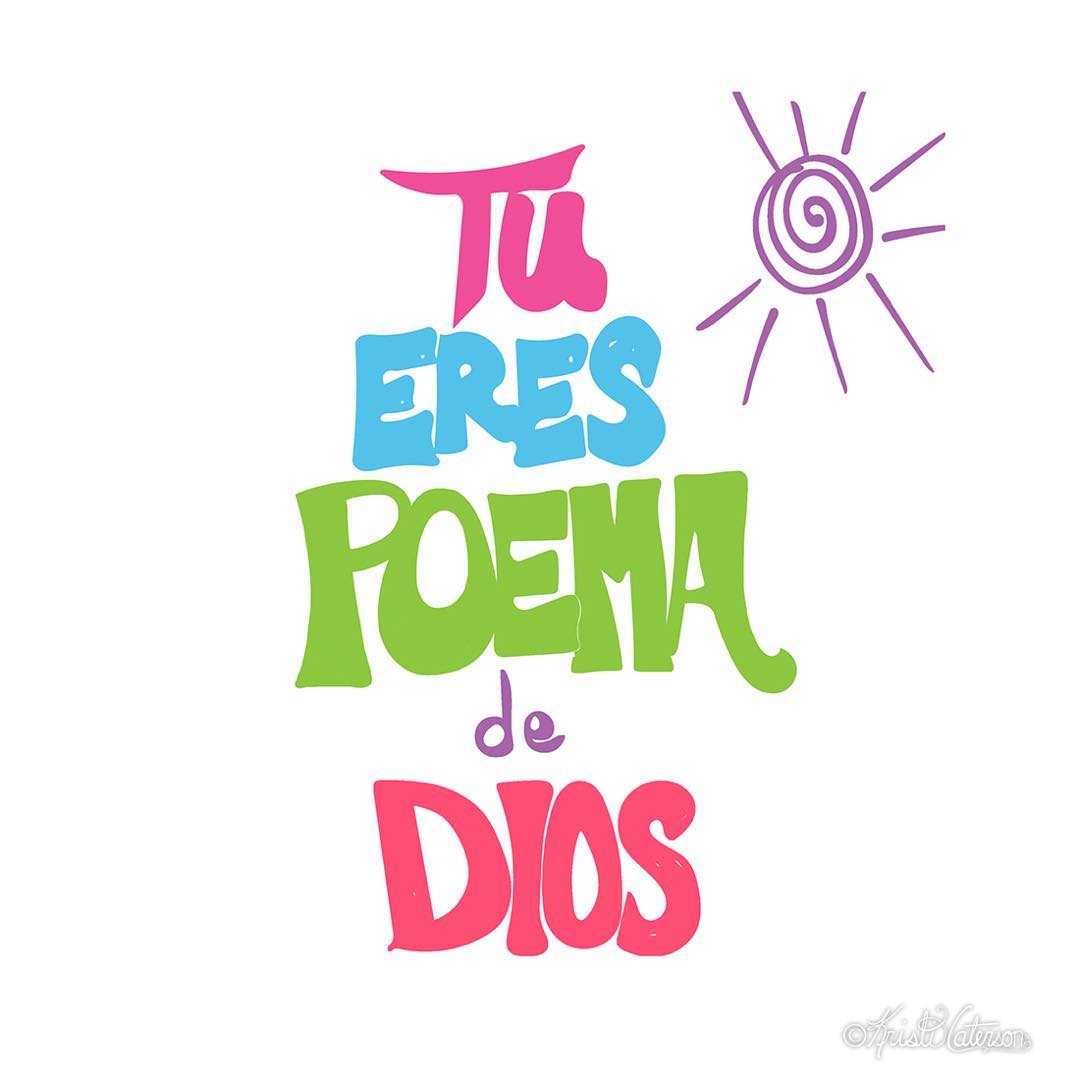 Tu
ERES
POEMA
de
DIOS
©Kristi Caterson